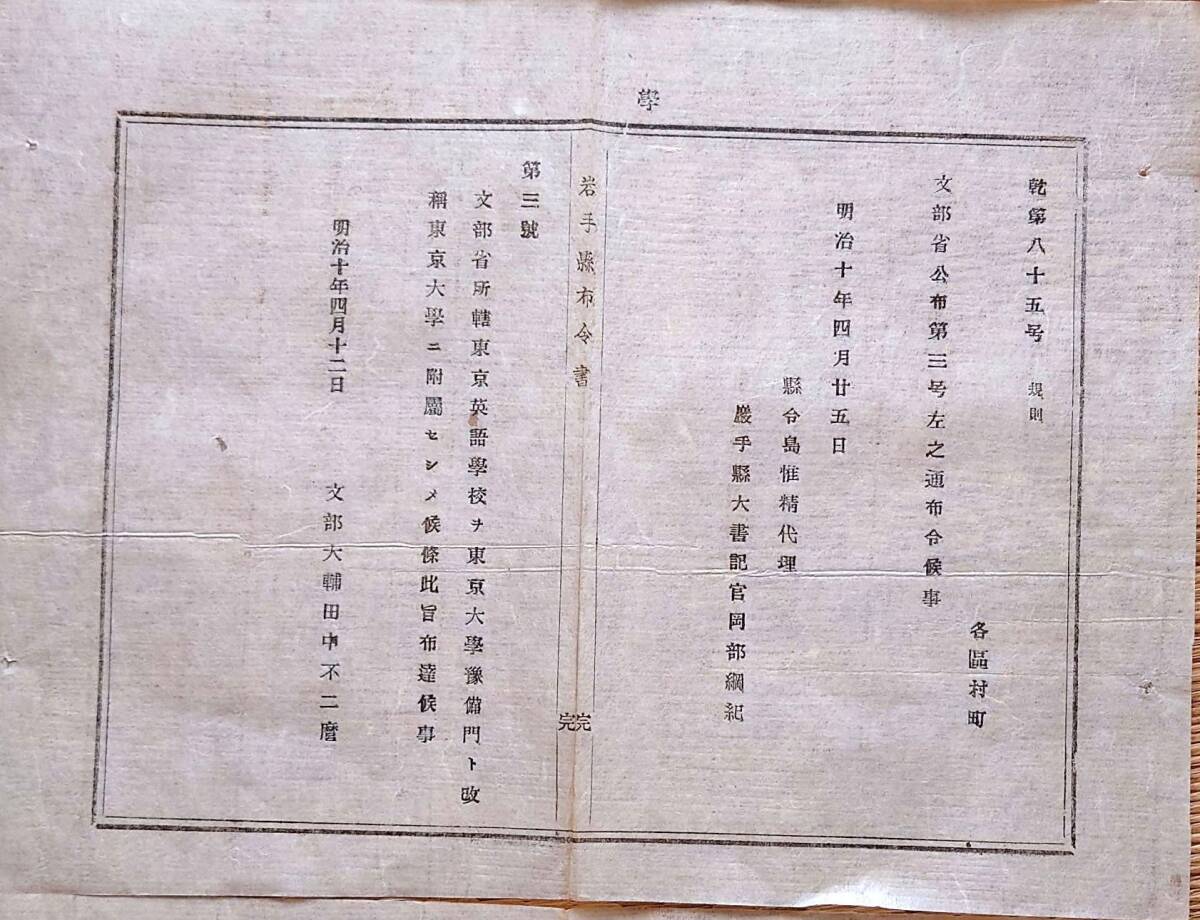 學
乾第八十五号 規則
各區村町
文部省公布第三号左之通布令候事
明治十年四月廿五日
縣令島惟精代理
巖手縣大書記官岡部綱紀
岩手縣布令書
完
完
第三號
文部省所轄東京英語學校ヲ東京大學豫備門ト改
稱東京大學ニ附屬セシメ候條此旨布達候事
明治十年四月十二日
文部大輔田中不二麿